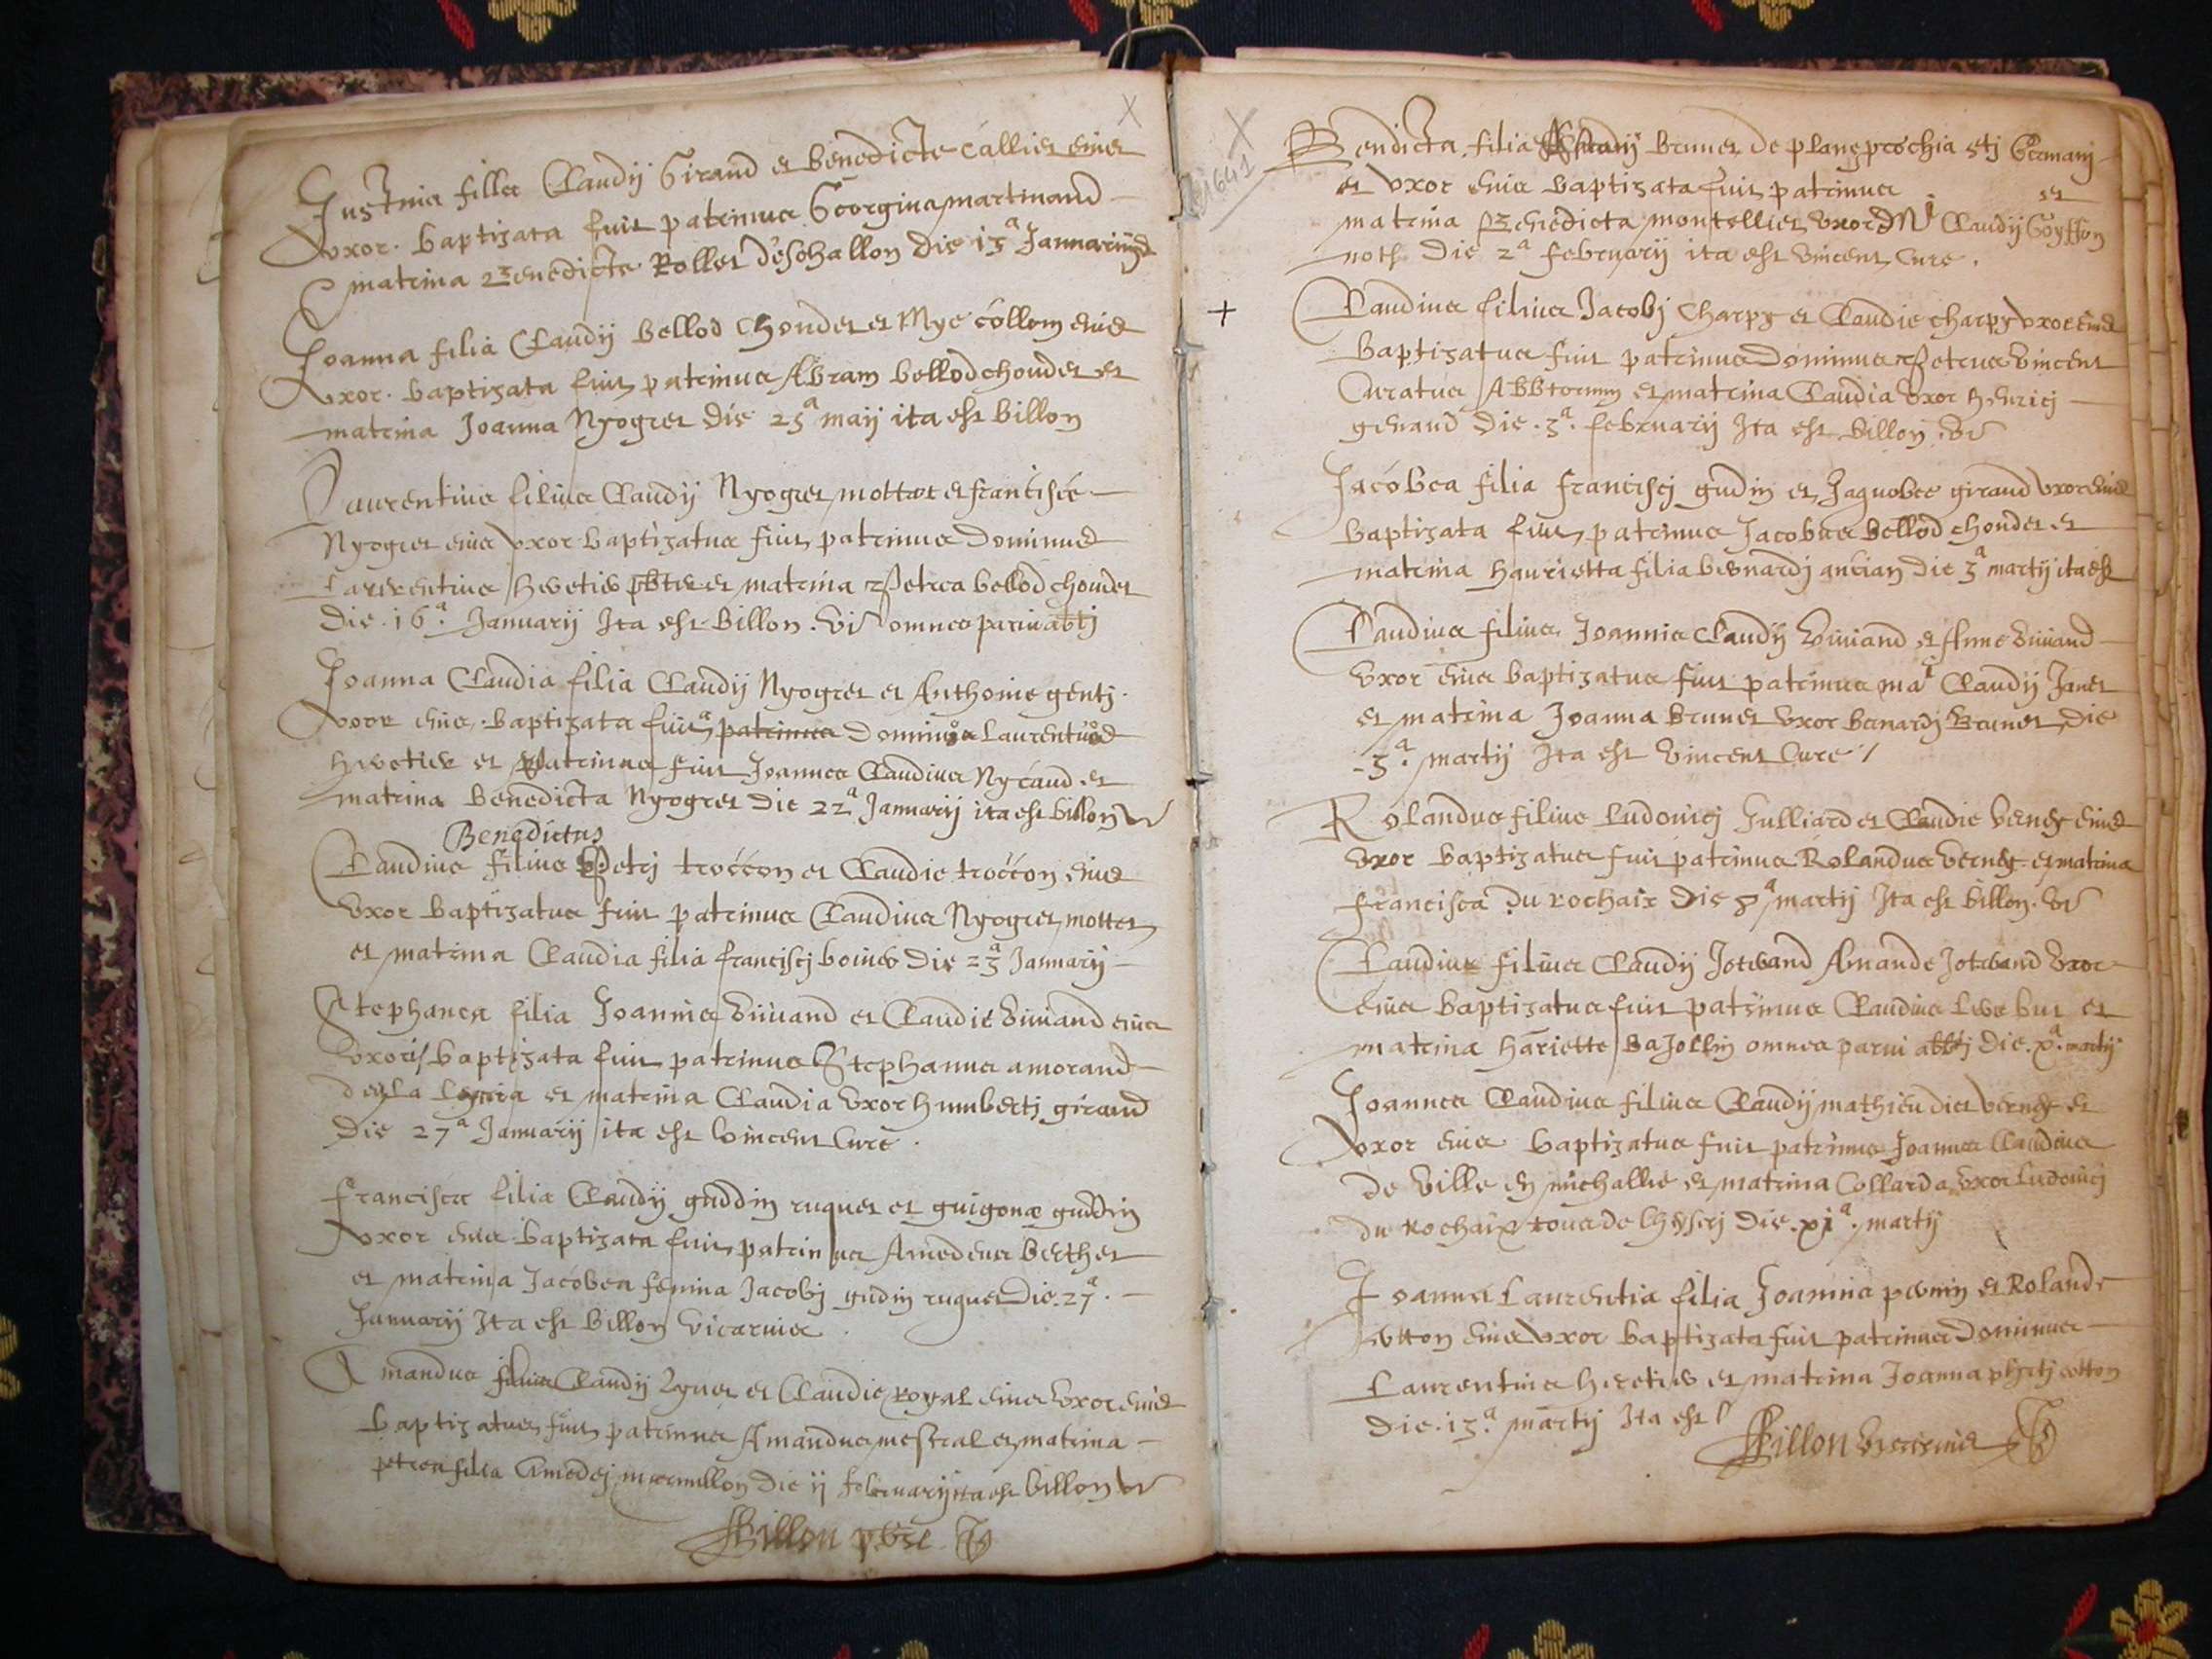 Justina fillia Claudij Girand et benedicte callier eius
uxor. baptizata fuit patrinus Georgius martinand
matrina Benedicte Rollet deschallon die 13ª Januarij
Joanna filia Claudij bellod chondet et Mye collom eius
uxor. baptizata fuit patrinus Abram bellod chondet et
matrina Joanna Nyogret die 25ª maij ita est billon
Laurentius filius Claudij Nyogret mottet et francisce
Nyogret eius uxor baptizatus fuit patrinus Dominus
Laurentius pbter et matrina Petrea bellod chondet
die. 16ª. Januarij Ita est Billon. omnes
Joanna Claudia filia Claudij Nyogret et Anthonie gentj.
uxor eius. baptizata fuit patrinus Dominus Laurentius
et patrinus fuit Joannes Claudius Nycaud et
matrina benedicta Nyogret die 22ª Januarij ita est billon
Benedictus
Claudius filius Petrj troccon et Claudie troccon eius
uxor baptizatus fuit patrinus Claudius Nyogret mottet
et matrina Claudia filia franciscj die 23ª Januarij
Stephanea filia Joannis Viviand et Claudie Viviand eius
uxoris baptizata fuit patrinus Stephanus amorand
de la et matrina Claudia uxor humbertj girand
die 27ª Januarij ita est vincent Cure.
francisca filia Claudij guddin ruquet et guigonæ guddin
uxor eius baptizata fuit patrinus Amedeus Berthet
et matrina Jacobea femina Jacobj gudin ruquet die. 27ª.
Januarij Ita est Billon vicarius
Amandus filius Claudij et Claudie royal eius uxor eius
baptizatus fuit patrinus Amandus mestral et matrina
petrea filia Amedej marmillon die ij februarij ita est billon
Billon pbre
1641
Bendicta. filia Claudij brunet de plane prochia stj Germanj
et uxor eius baptizata fuit patrinus et
matrina Benedicta montellier uxor Claudij Goyffon
noth die 2ª february ita est vincent Cure.
+
Claudius filius Jacobj Charpy et Claudie charpy uxor eius
baptizatus fuit patrinus Dominus Petrus vincent
Curatus et matrina Claudia uxor henricj
genand die. 3ª. february Ita est billon. Vi
Jacobea filia franciscj gudin et Jaquobee girand uxor eius
baptizata fuit patrinus Jacobus Bellod chondet et
matrina Haurietta filia bernardj ancian die 3ª martij ita est
Claudius filius Joannis Claudij Viviand et Anne Viviand
uxor eius baptizatus fuit patrinus Claudij Janet
et matrina Joanna Brunet uxor bernardj Brunet die
.3ª. martij Ita est vincent Cure /
Rolandus filius Ludovicj Julliard et Claudie verney eius
uxor baptizatus fuit patrinus Rolandus verney et matrina
francisca Du rochaix die 8ª martij Ita est billon. Vi
Claudius filius Claudij Amande uxor
eius baptizatus fuit patrinus Claudius et
matrina Hariette Bajollin omnes parvi abbtj die. xª. martij
Joannes Claudius filius Claudij mathieu dict verney et
uxor eius baptizatus fuit patrinus Joannes Claudius
de Ville en michallie et matrina Collarda uxor Ludovicj
du Rochaix die. xjª. martij
Joanna Laurentia filia Joannis et Rolande
eius uxor baptizata fuit patrinus Dominus
Laurentius et matrina Joanna
die. 13ª. martij Ita est
Billon vicarius